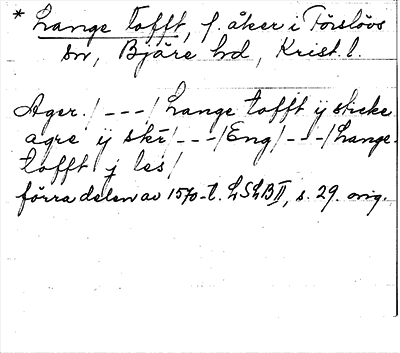 * Lange tofft, f. åker i Förslövs
sn, Bjäre hd, Krist. l.
Ager / --- / Lange tofft ij sticke
agre ij skr / --- / Eng / --- / Lange-
tofft j les /
förra delen av 1570-t. LSLB II, s. 29. orig.